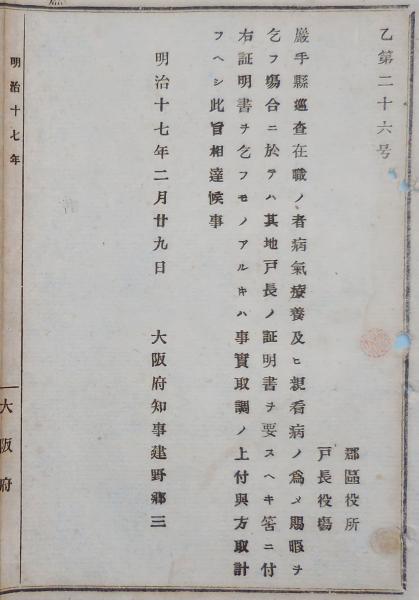 乙第二十六号
郡區役所
戸長役塲
巖手縣巡査在職ノ者病氣療養及ヒ親看病ノ爲メ賜暇ヲ
乞フ塲合ニ於テハ其地戸長ノ証明書ヲ要スヘキ筈ニ付
右証明書ヲ乞フモノアルキハ事實取調ノ上付與方取計
フヘシ此旨相達候事
明治十七年二月廿九日　大阪府知事建野郷三
明治十七年
大阪府